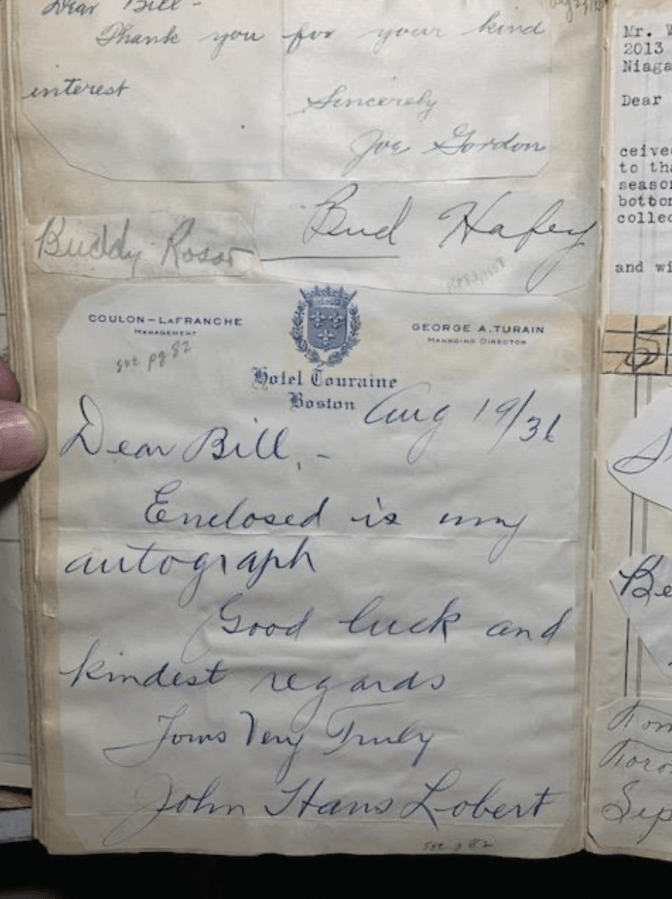 Dear Bill -
Thank you for your kind
interest
Sincerely
Joe Gordon
Bud Hafey
Buddy Rosar
COULON-LAFRANCHE
MANAGEMENT
GEORGE A. TURAIN
MANAGING DIRECTOR
see pg 82
Hotel Touraine
Boston
Aug 19/36
Dear Bill, -
Enclosed is my
autograph
Good luck and
kindest regards
Yours Very Truly
John Hans Lobert
see p 82
Mr. W
2013
Niaga
Dear
ceive
to tha
season
bottom
collec
and wi
Be
Toro
Sep